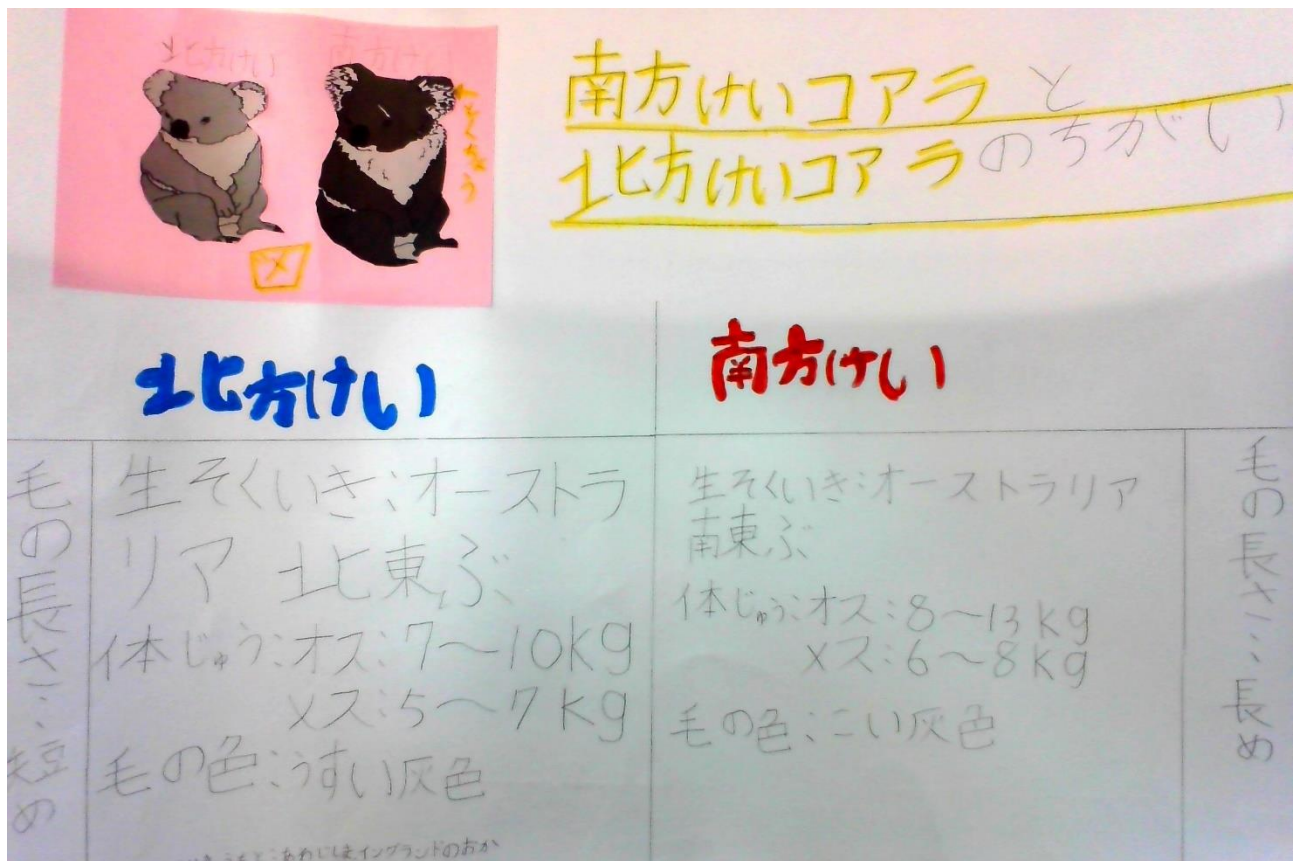 北方けい
南方けい
南方けいコアラと
北方けいコアラのちがい
北方けい
毛の長さ…短め
生そくいき:オーストラ
リア 北東ぶ
体じゅう:オス:7〜10kg
メス:5〜7kg
毛の色:うすい灰色
南方けい
生そくいき:オーストラリア
南東ぶ
体じゅう:オス:8〜13kg
メス:6〜8kg
毛の色:こい灰色
毛の長さ…長め
あわじしまイングランドのおか